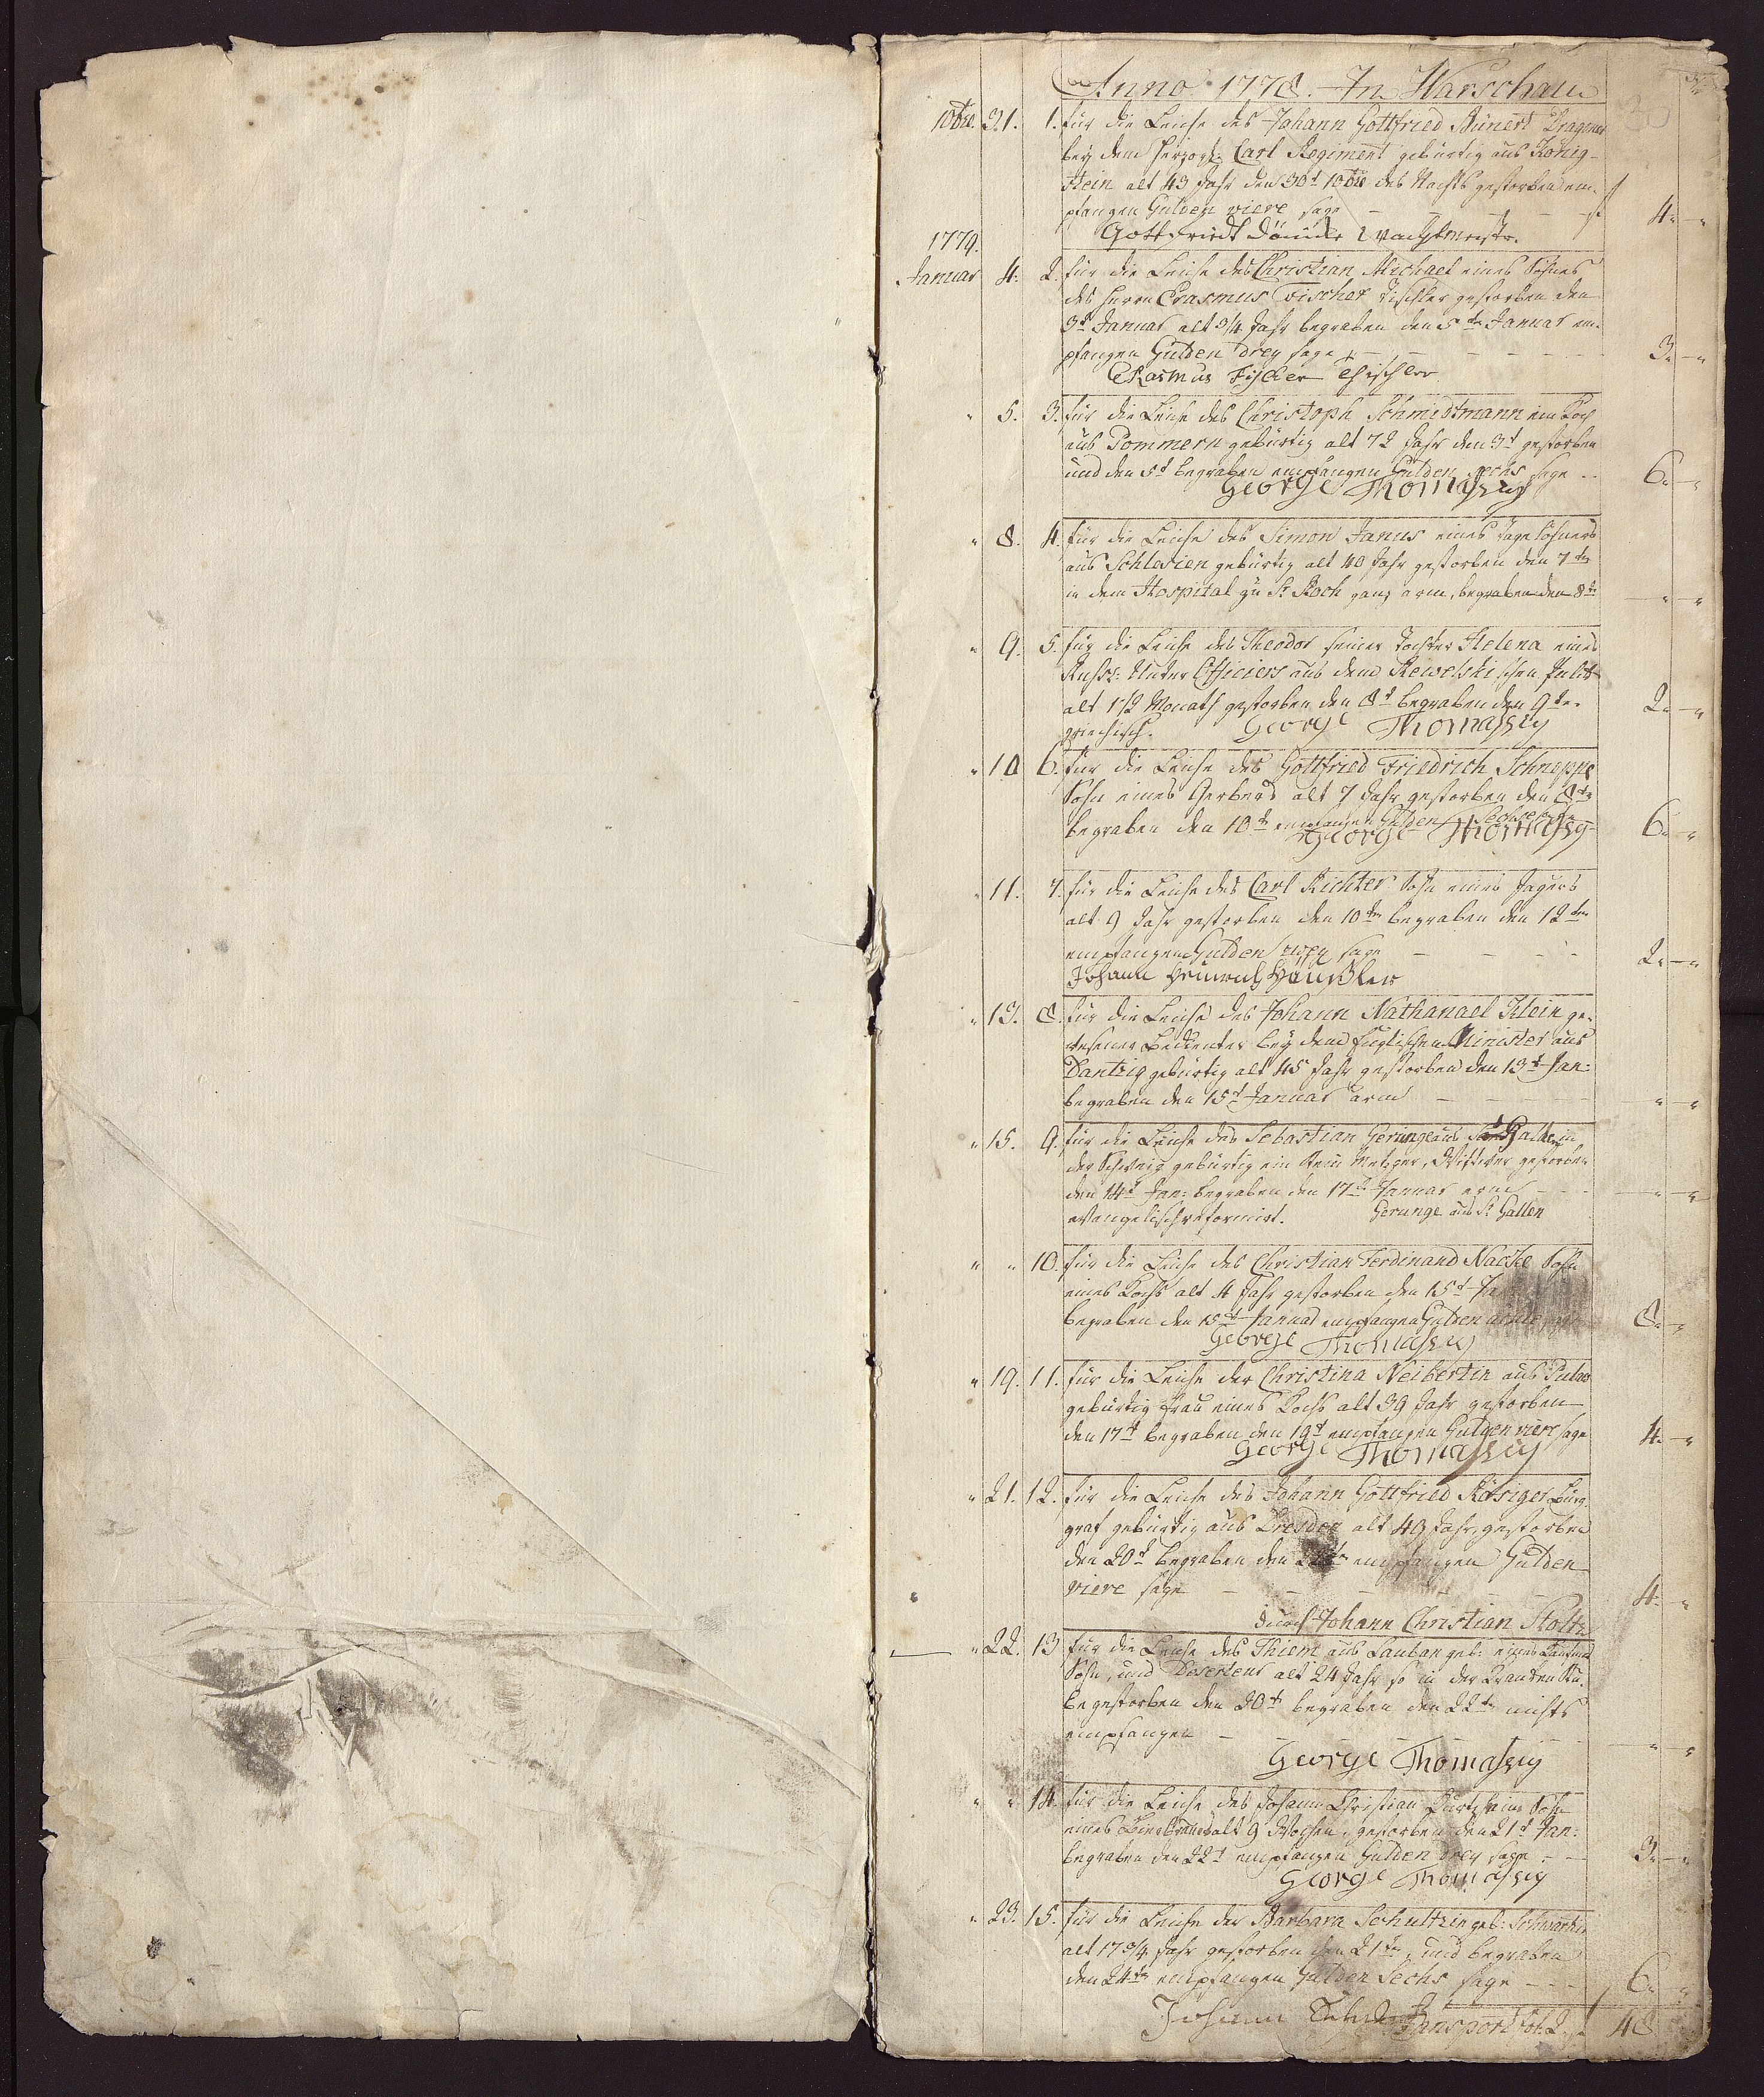 Anno 1778. In Warschau
10bre. 31. 1. für die Leiche des Johann Gottfried Bünert Dragoner
bey dem Herzogl: Carl Regiment gebürtig aus König-
stein alt 43 Jahr den 30t 10bre des Nachts gestorben em-
pfangen Gulden viere sage — — — f 4 „ — „
Gottfriedt Wachtmeister.
1779.
Januar 4. 2. für die Leiche des Christian Michael eines Sohnes
des Herrn Erasmus Fischer Tischler gestorben den
3t Januar alt 3/4 Jahr begraben den 5ten Januar em-
pfangen Gulden drey sage — — — 3 „ — „
Erasmus Fischer Tischler
„ 5. 3. für die Leiche des Christoph Schmidtmann ein Koch
aus Pommern gebürtig alt 72 Jahr den 3t gestorben
und den 5t begraben empfangen Gulden sechs sage — 6 „ — „
George Thomassy
„ 8. 4. für die Leiche des Simon Janus eines Tagelöhners
aus Schlesien gebürtig alt 40 Jahr gestorben den 7ten
in dem Hospital zu St. Roch ganz arm, begraben den 8ten — „ — „
„ 9. 5. für die Leiche des Theodor seiner Tochter Helena eines
Russ: Unter Officiers aus dem Rewelskischen
alt 1 1/2 Monath gestorben den 8t begraben den 9te. 2 „ — „
griechisch. George Thomassy
„ 10 6. für die Leiche des Gottfried Friedrich Schneppe
Sohn eines Gerbers alt 7 Jahr gestorben den 8ten
begraben den 10ten empfangen Gulden Sechs sage 6 „ — „
George Thomassy
„ 11. 7. für die Leiche des Carl Richter Sohn eines Jägers
alt 9 Jahr gestorben den 10ten begraben den 12ten
empfangen Gulden zwey sage — — — 2 „ — „
Johann Heinrich Häußler
„ 13. 8. für die Leiche des Johann Nathanael Klein ge-
wesener Bedienter bey dem Englischen Minister aus
Dantzig gebürtig alt 45 Jahr gestorben den 13t Jan:
begraben den 15t Januar arm — — — „ — „
„ 15. 9. für die Leiche des Sebastian Gerunge aus Gallen in
der Schweiz gebürtig ein Stein Metzger, Wittwer gestorben
den 14t Jan: begraben den 17t Januar arm — — „ — „
evangelisch reformirt. Gerunge aus St. Gallen
„ „ 10. für die Leiche des Christian Ferdinand Nacke Sohn
eines Kochs alt 4 Jahr gestorben den 15t
begraben den Januar empfangen Gulden achte 8 „ — „
George Thomassy
„ 19. 11. für die Leiche der Christina Neibertin aus
gebürtig Frau eines Kochs alt 39 Jahr gestorben
den 17t begraben den 19t empfangen Gulden viere sage 4 „ — „
George Thomassy
„ 21. 12. für die Leiche des Johann Gottfried Rösiger Burg-
graf gebürtig aus Dresden alt 49 Jahr, gestorben
den 20t begraben den empfangen Gulden
viere sage — — — 4 — „
durch Johann Christian Stoltz
„ 22. 13 für die Leiche des Thiem aus Lauban geb: eines
Sohn, und Deserteur alt 24 Jahr so in der Kranken Stu-
be gestorben den 20t begraben den 22ten nichts
empfangen — — — „ — „
George Thomassy
„ „ 14. für die Leiche des Johann Christian Sohn
eines alt 9 Wochen, gestorben den 21t Jan:
begraben den 22t empfangen Gulden drey sage — 3 „ — „
George Thomassy
„ 23. 15. für die Leiche der Barbara Schultzin geb: Schwartzin
alt 17 3/4 Jahr gestorben den 21ten, und begraben
den 24ten empfangen Gulden Sechs sage — — 6 „ — „
Johann Transport fol. 2. f 48